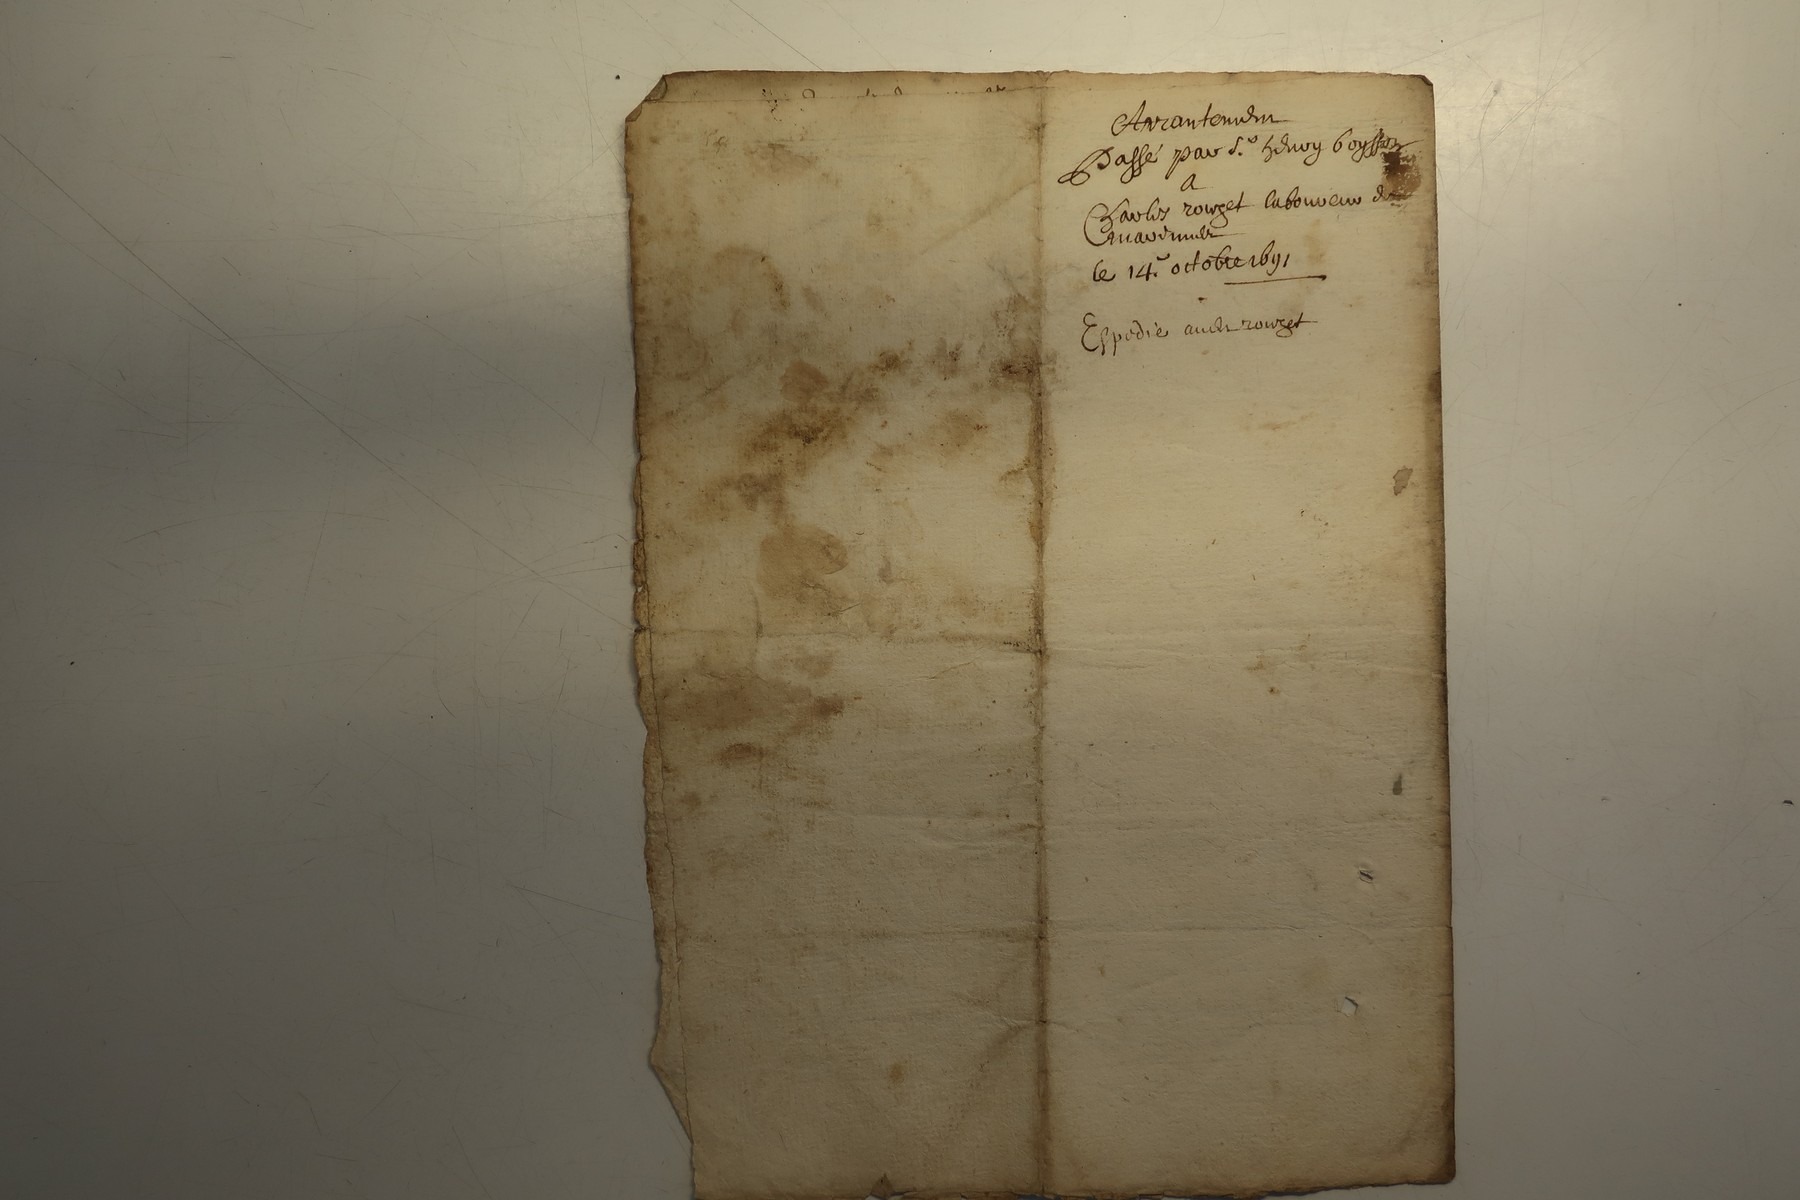 Arrantemen
Passé par s.r henry boysson
a
Charles rouget laboureur de
le 14.e octobre 1691
Espedié audit rouget